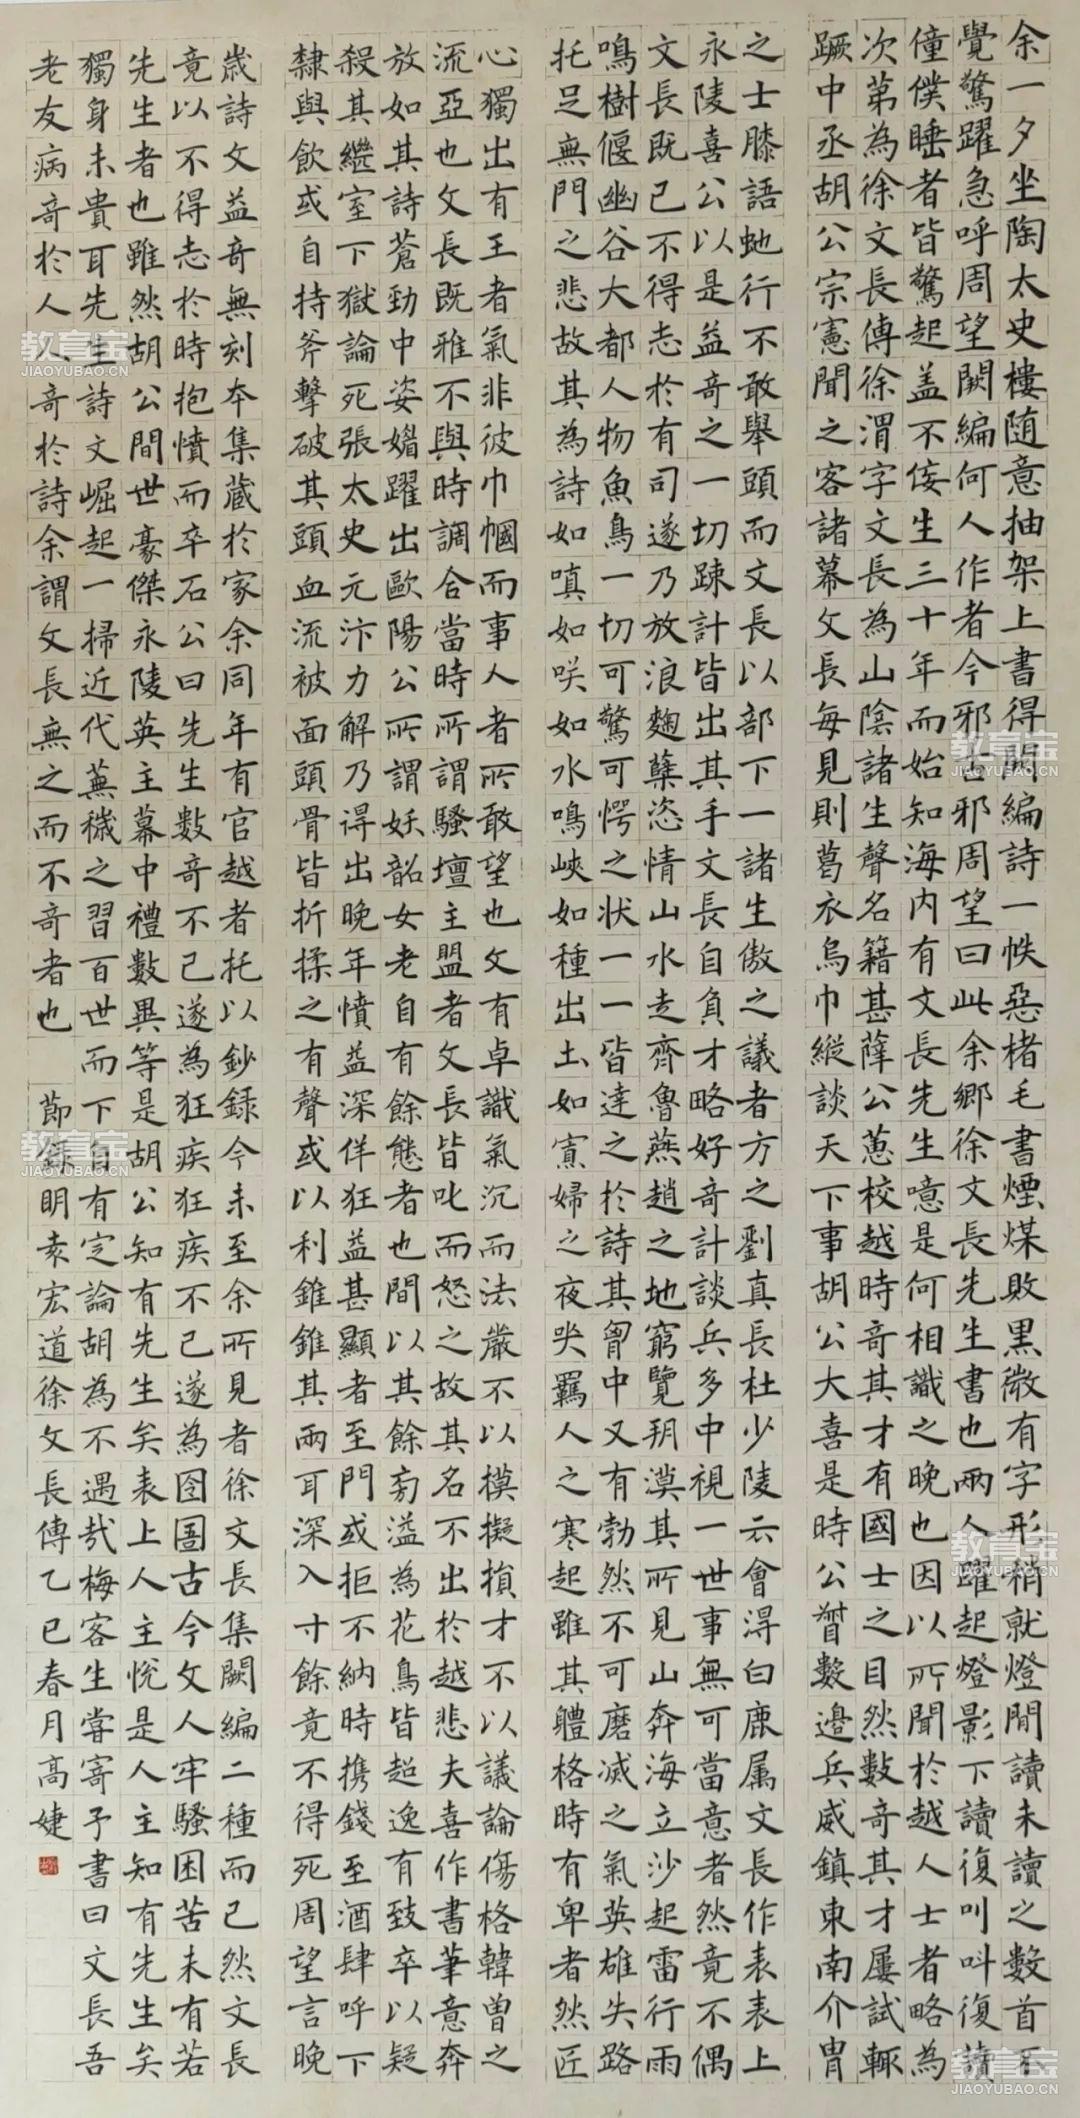 余一夕坐陶太史樓随意抽架上書得闕編詩一帙惡楮毛書煙煤敗黑微有字形稍就燈閒讀未讀之數首不
覺驚躍急呼周望闕編何人作者今邪古邪周望曰此余鄉徐文長先生書也兩人躍起燈影下讀復叫叫復讀
僮僕睡者皆驚起盖不佞生三十年而始知海内有文長先生噫是何相識之晚也因以所聞於越人士者略為
次第為徐文長傳徐渭字文長為山陰諸生聲名籍甚薛公蕙校越時奇其才有國士之目然數奇其才屢試輒
蹶中丞胡公宗憲聞之客諸幕文長每見則葛衣烏巾縱談天下事胡公大喜是時公督數邊兵威鎮東南介冑
之士膝語虵行不敢舉頭而文長以部下一諸生傲之議者方之劉真長杜少陵云會得白鹿属文長作表表上
永陵喜公以是益奇之一切疎計皆出其手文長自負才略好奇計談兵多中視一世事無可當意者然竟不偶
文長既已不得志於有司遂乃放浪麴蘖恣情山水走齊魯燕趙之地窮覽朔漠其所見山奔海立沙起雷行雨
鳴樹偃幽谷大都人物魚鳥一切可驚可愕之状一一皆達之於詩其胷中又有勃然不可磨滅之氣英雄失路
托足無門之悲故其為詩如嗔如咲如水鳴峽如種出土如寡婦之夜哭羈人之寒起雖其體格時有卑者然匠
心獨出有王者氣非彼巾幗而事人者所敢望也文有卓識氣沉而法嚴不以模擬損才不以議論傷格韓曾之
流亞也文長既雅不與時調合當時所謂騷壇主盟者文長皆叱而怒之故其名不出於越悲夫喜作書筆意奔
放如其詩蒼勁中姿媚躍出歐陽公所謂妖韶女老自有餘態者也間以其餘旁溢為花鳥皆超逸有致卒以疑
殺其繼室下獄論死張太史元汴力解乃得出晚年憤益深佯狂益甚顯者至門或拒不納時携錢至酒肆呼下
隸與飲或自持斧擊破其頭血流被面頭骨皆折揉之有聲或以利錐錐其兩耳深入寸餘竟不得死周望言晚
歲詩文益奇無刻本集藏於家余同年有官越者托以鈔録今未至余所見者徐文長集闕編二種而已然文長
竟以不得志於時抱憤而卒石公曰先生數奇不已遂為狂疾狂疾不已遂為囹圄古今文人牢騷困苦未有若
先生者也雖然胡公間世豪傑永陵英主幕中禮數異等是胡公知有先生矣表上人主悅是人主知有先生矣
獨身未貴耳先生詩文崛起一掃近代蕪穢之習百世而下自有定論胡為不遇哉梅客生嘗寄予書曰文長吾
老友病奇於人人奇於詩余謂文長無之而不奇者也 節録明袁宏道徐文長傳乙巳春月高婕
教育宝
JIAOYUBAO.CN
教育宝
JIAOYUBAO.CN
教育宝
JIAOYUBAO.CN
教育宝
JIAOYUBAO.CN
教育宝
JIAOYUBAO.CN